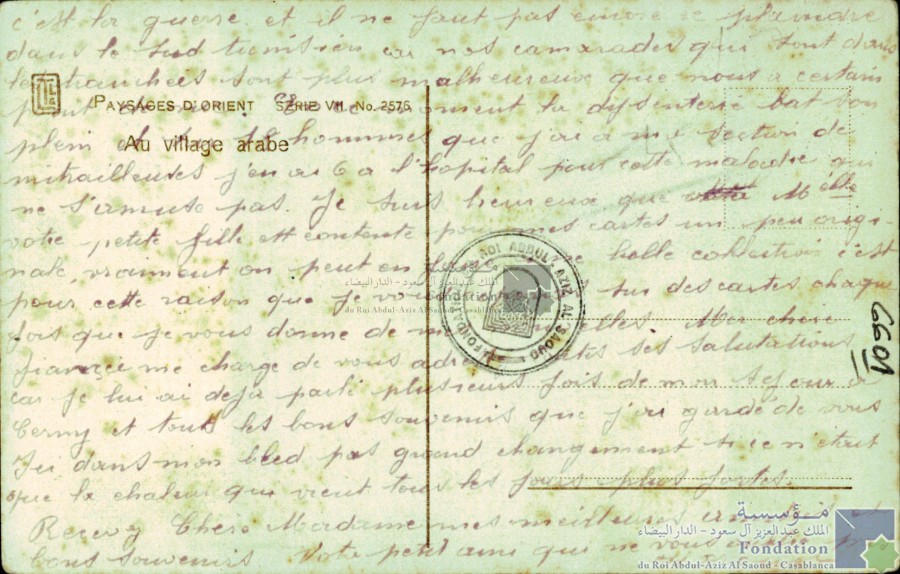 c'est la guerre et il ne faut pas encore se plaindre
dans le sud tunisien car nos camarades qui sont dans
les tranchées sont plus malheureux que nous a certain
point
PAYSAGES D'ORIENT SÉRIE VII. No. 2576
moment la dysenterie bat son
plein
hommes que j'ai a ma section de
Au village arabe
mitrailleuses j'en ai 6 a l'hopital pour cette maladie qui
ne s'amuse pas. Je suis heureux que Melle
votre petite fille est contente pour mes cartes un peu origi-
nale vraiment on peut en belle collection c'est
pour cette raison que je sur des cartes chaque
fois que je vous donne de Ma chere
fiancée me charge de vous ses salutations
car je lui ai deja parlé plusieurs fois de mon sejour a
Cerny et tout les bons souvenirs que j'ai gardé de vous
Ici dans mon bled pas grand changement si ce n'etait
que la chaleur qui vient tous les jours plus fortes.
Recevez Chere Madame mes meilleures
bons souvenirs Votre petit ami qui ne vous
FONDATION DU ROI ABDUL AZIZ AL SAOUD
6601
مؤسسة
الملك عبد العزيز آل سعود - الدار البيضاء
Fondation
du Roi Abdul-Aziz Al Saoud - Casablanca